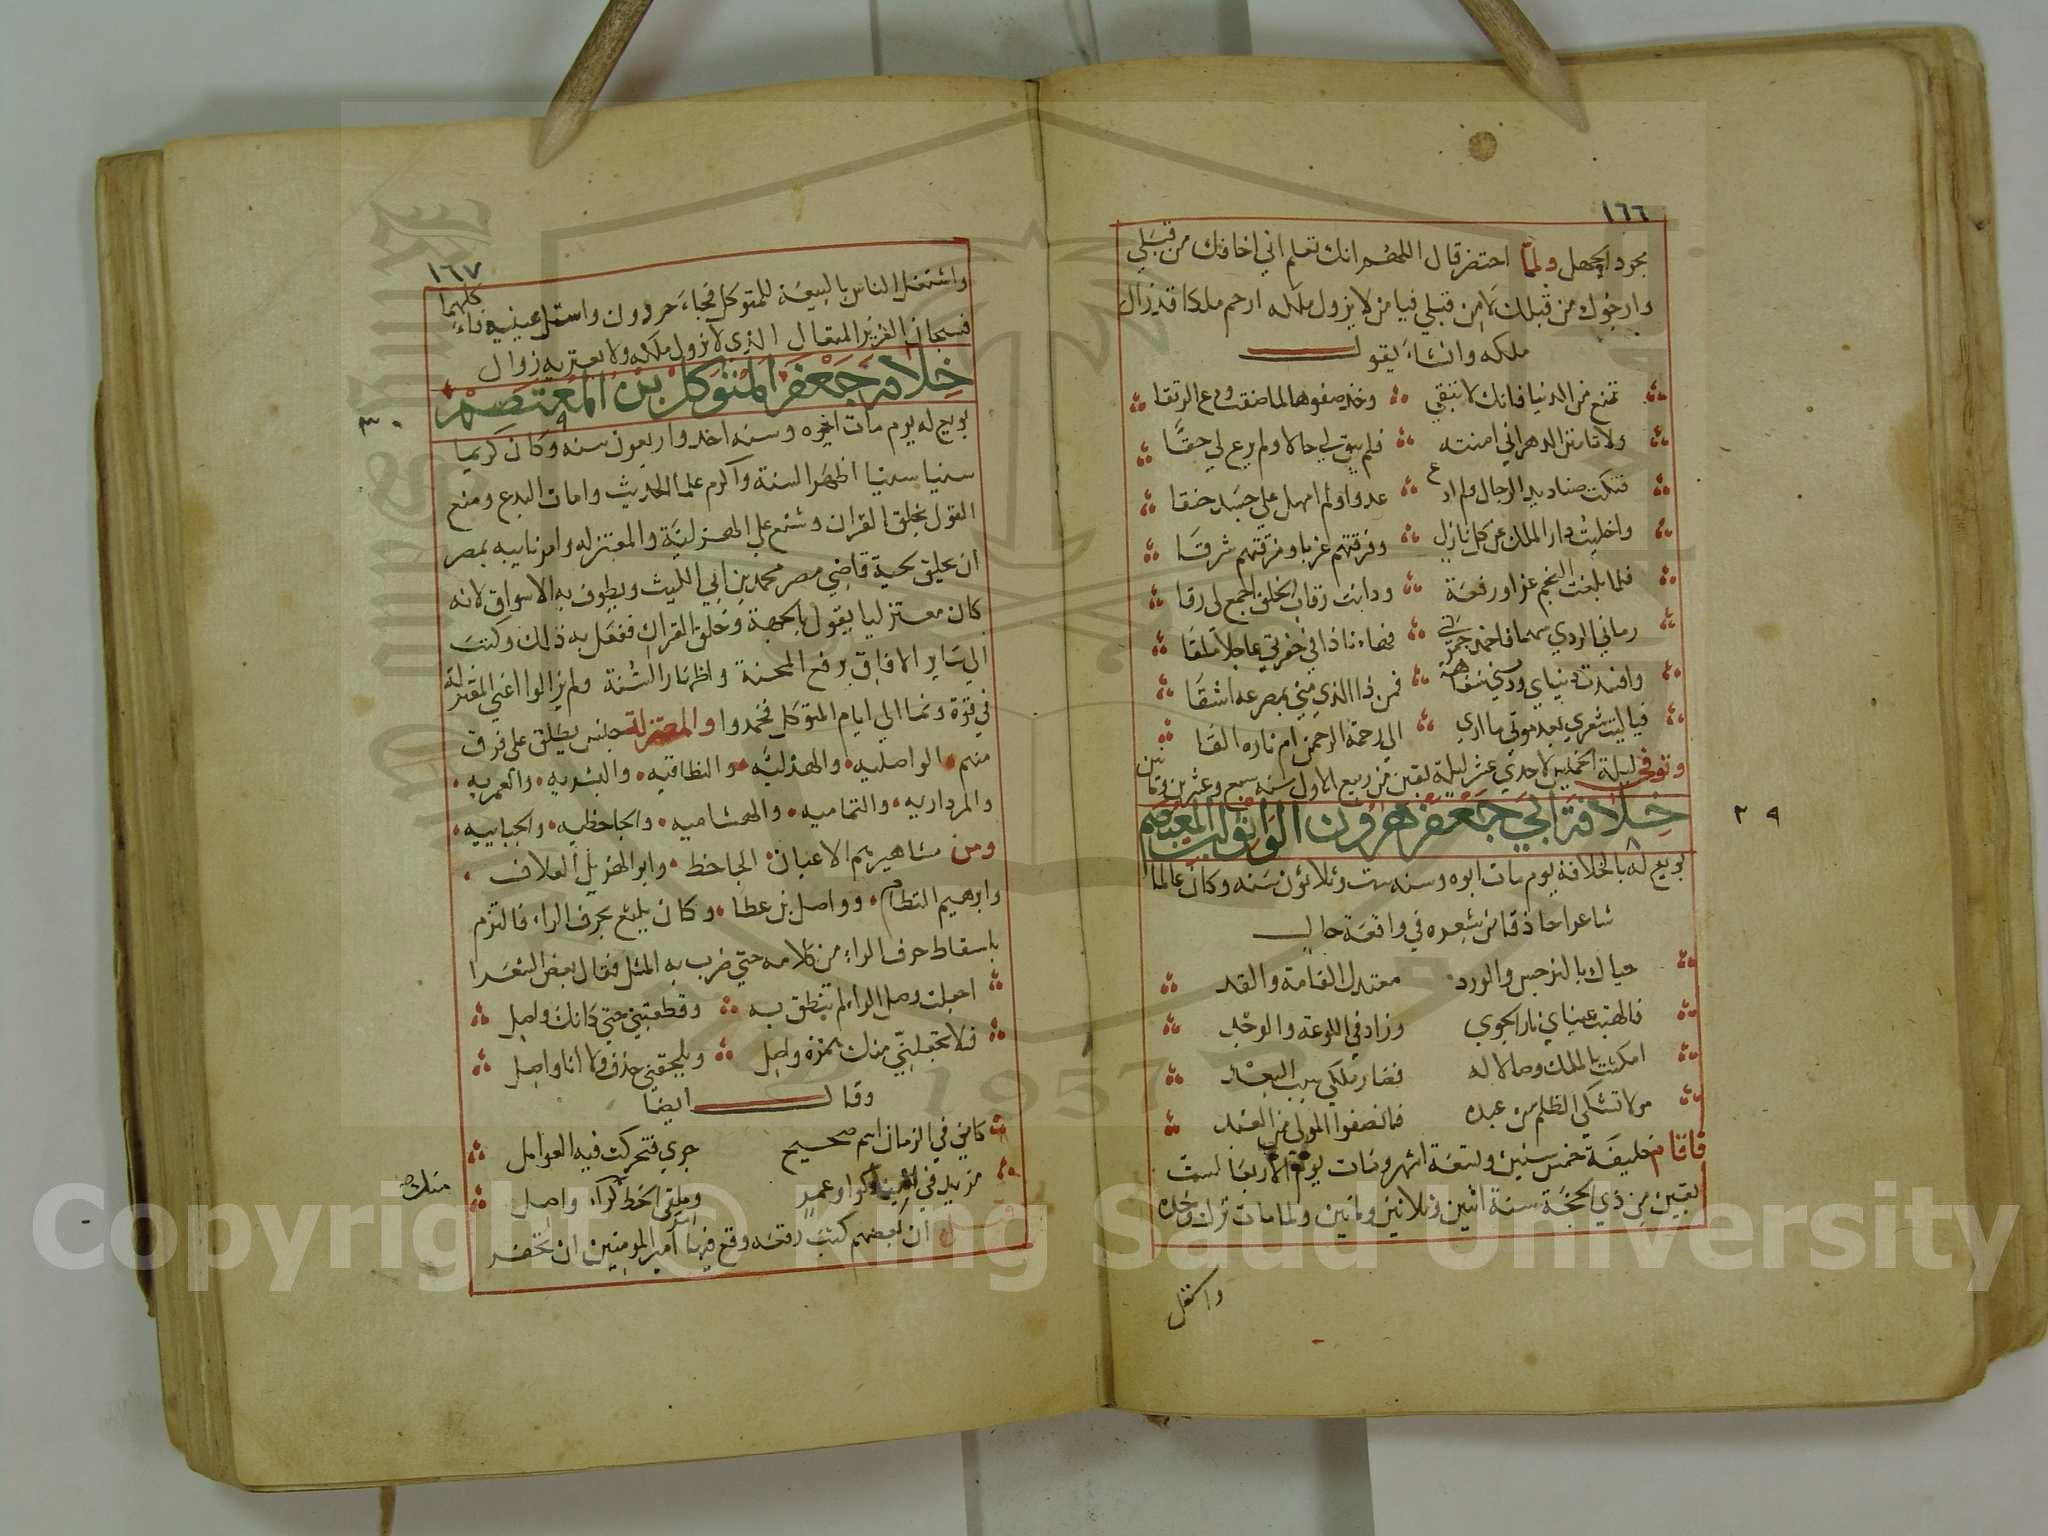 ١٦٦
بجرد الجهل ولما احتضر قال اللهم انك تعلم اني اخافك من قبلي
وارجوك من قبلك لا من قبلي فيا من لا يزول ملكه ارحم ملكا قد زال
ملكه وانشاء يقول
تمتع من الدنيا فانك لا تبقي وخذ صفوها لما صفت ودع الرتقا
ولا تامنن الدهر اني امنته فلم يبق لي حالا ولم يرع لي حقا
قتلت صناديد الرجال ولم ادع عدوا ولم امهل علي جسد خفقا
واخليت دار الملك من كل نازل وفرقتهم غربا ومزقتهم شرقا
فلما بلغت النجم عزا ورفعة ودانت رقاب الخلق اجمع لي رقا
رماني الردي سهما فاخمد جمرتي فهاء نا ذا في حفرتي عاجلا ملقا
وافسدت دنياي وديني سفاهة فمن ذا الذي مني بمصرعه اشقا
فيا ليت شعري بعد موتي ما اري الي رحمة الرحمن ام ناره القا
وتوفي ليلة الخميس لاحدي عشر ليلة بقين من ربيع الاول سنه سبع وعشرين وماتين
خلافة ابي جعفر هرون الواثق ابن المعتصم
٢٩
بويع له بالخلافة يوم مات ابوه وسنه ست وثلاثون سنه وكان عالما
شاعرا حاذقا من شعره في واقعة حال
حياك بالنرجس والورد معتدل القامة والقد
فالهبت عيناي نار الجوي وزاد في اللوعة والوجد
امكنت بالملك وصالا له فصار ملكي سبب البعد
مولا تشكي الظلم من عبده فانصفوا المولي من العبد
فاقام خليفة خمس سنين وتسعة اشهر ومات يوم الاربعا لست
بقين من ذي الحجة سنة اثنين وثلاثين وماتين ولما مات ترك وحده
واشتغل
١٦٧
واشتغل الناس بالبيعة للمتوكل فجاء حردون واستل عينيه فاءكلهما
فسبحان العزيز المتعال الذي لا يزول ملكه ولا يعتريه زوال
خلافة جعفر المتوكل بن المعتصم
٣٠
بويع له يوم مات اخيه وسنه احد واربعون سنه وكان كريما
سنيا سنيا اظهر السنة واكرم علما الحديث وامات البدع ومنع
القول بخلق القران وشنع علي الهزلية والمعتزله وامر نايبه بمصر
ان يحلق لحية قاضي مصر محمد بن ابي الليث ويطوف به الاسواق لانه
كان معتزليا يقول بالجهة وخلق القران ففعل به ذلك وكتب
الي ساير الافاق برفع المحنة واظهار السنة ولم يزالوا اعني المعتزلة
في قوة ونما الي ايام المتوكل فخمدوا والمعتزلة جنس يطلق علي فرق
منهم الواصليه والهذليه والنظاميه والبشريه والعمريه
والمرداريه والثماميه والهشاميه والجاحظيه والجباييه
ومن مشاهيرهم الاعيان الجاحظ وابو الهزيل العلاف
وابرهيم النظام وواصل بن عطا وكان يلثغ بحرف الراء فالتزم
باسقاط حرف الراء من كلامه حتي ضرب به المثل فقال بعض الشعرا
اجعلت وصلي الراء لم تنطق به وقطعتني حتي كانك واصل
فلا تجعلني منك همزه واصل ويلحقني حذف ولا انا واصل
وقال ايضا
كاني في الزمان اسم صحيح جري فتحركت فيه العوامل
مزيد في بنيه كواو عمرو وملقي الحظ كراء واصل
ان بعضهم كتب رقعه وقع فيها امير المومنين ان تحفر
Copyright © King Saud University
1957